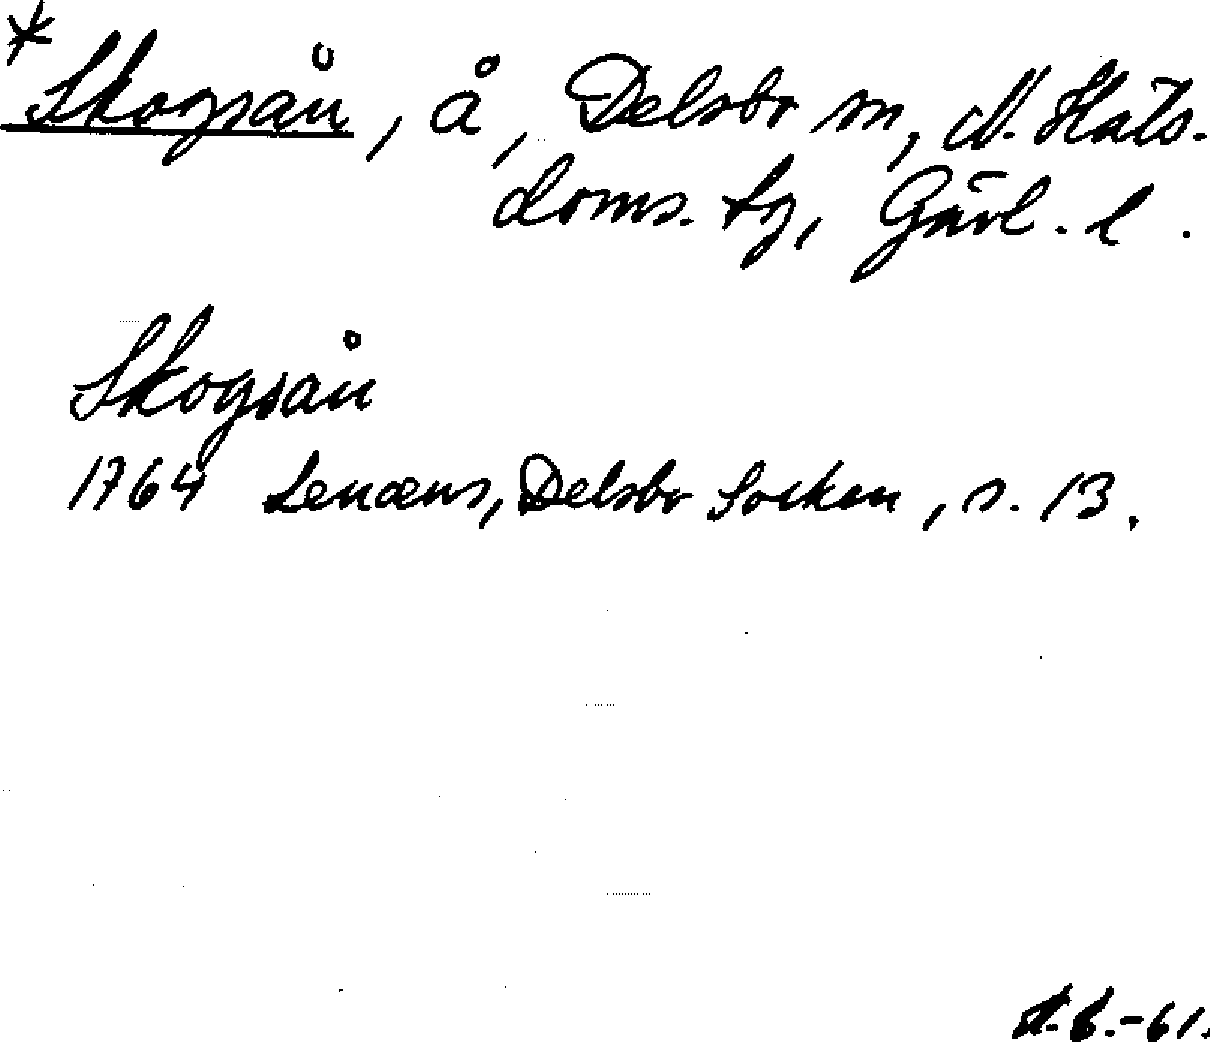 *Skogsån, å, Delsbo sn, N. Häls.
doms. tg, Gävl. l.
Skogsån
1764 Lenæus, Delsbo Socken, s. 13.
-61.